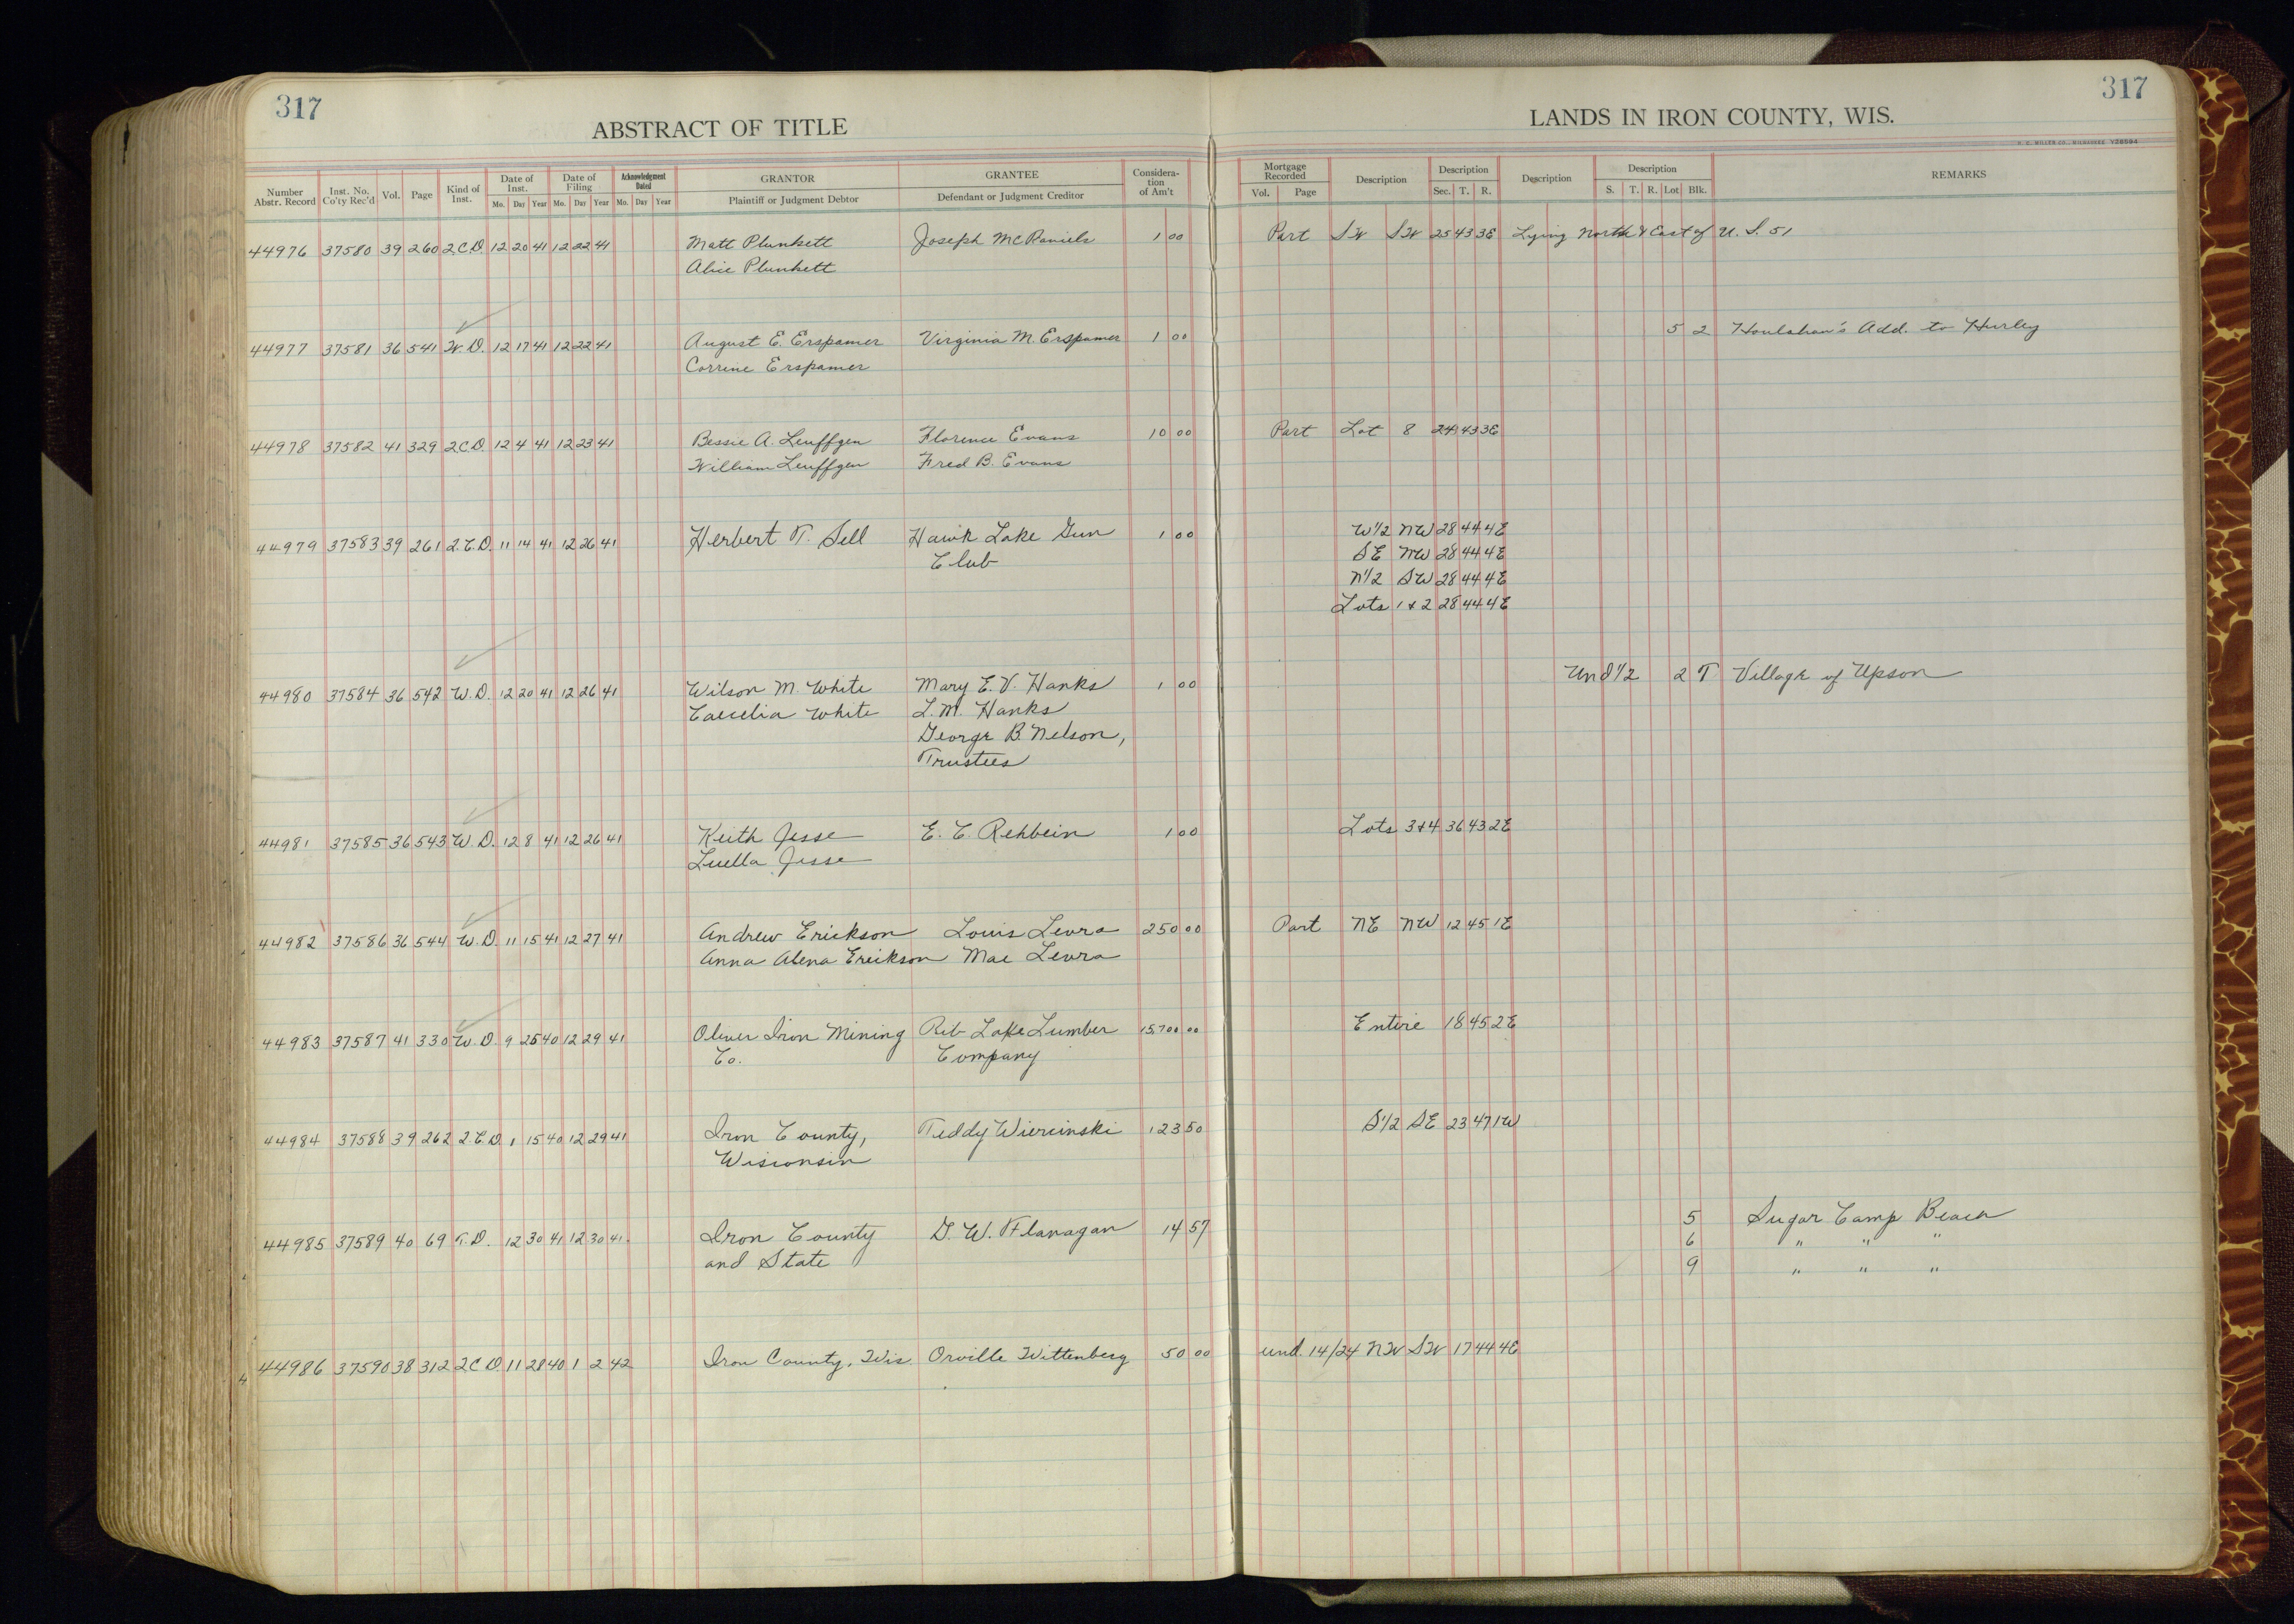 317
317
ABSTRACT OF TITLE
LANDS IN IRON COUNTY, WIS.
H. C. MILLER CO., MILWAUKEE Y28594
Number Abstr. Record Inst. No. Co'ty Rec'd Vol. Page Kind of Inst. Date of Inst. Mo. Day Year Date of Filing Mo. Day Year Acknowledgment Dated Mo. Day Year GRANTOR Plaintiff or Judgment Debtor GRANTEE Defendant or Judgment Creditor Considera-tion of Am't Mortgage Recorded Vol. Page Description Description Sec. T. R. Description Description S. T. R. Lot Blk. REMARKS
44976 37580 39 260 2.C.D. 12 20 41 12 22 41 Matt Plunkett Joseph McDaniels 1 00 Part SW SW 25 43 3E Lying North & East of U. S. 51
Alice Plunkett
44977 37581 36 541 W.D. 12 17 41 12 22 41 August E. Erspamer Virginia M. Erspamer 1 00 5 2 Houlahan's Add. to Hurley
Corrine Erspamer
44978 37582 41 329 2C.D. 12 4 41 12 23 41 Bessie A. Leuffgen Florence Evans 10 00 Part Lot 8 24 43 3E
William Leuffgen Fred B. Evans
44979 37583 39 261 2.C.D. 11 14 41 12 26 41 Herbert T. Sell Hawk Lake Gun 1 00 W1/2 NW 28 44 4E
Club SE NW 28 44 4E
N1/2 SW 28 44 4E
Lots 1 & 2 28 44 4E
44980 37584 36 542 W.D. 12 20 41 12 26 41 Wilson M. White Mary E. V. Hanks 1 00 Und 1/2 2 T Village of Upson
Caecelia White L. M. Hanks
George B. Nelson,
Trustees
44981 37585 36 543 W.D. 12 8 41 12 26 41 Keith Jesse E. C. Rehbein 1 00 Lots 3&4 36 43 2E
Luella Jesse
44982 37586 36 544 W.D. 11 15 41 12 27 41 Andrew Erickson Louis Levra 250 00 Part NE NW 12 45 1E
Anna Alena Erickson Mae Levra
44983 37587 41 330 W.D. 9 25 40 12 29 41 Oliver Iron Mining Rib Lake Lumber 15,700 00 Entire 18 45 2E
Co. Company
44984 37588 39 262 2.C.D. 1 15 40 12 29 41 Iron County, Teddy Wiercinski 123 50 S1/2 SE 23 47 1W
Wisconsin
44985 37589 40 69 T.D. 12 30 41 12 30 41 Iron County G. W. Flanagan 14 57 5 Sugar Camp Beach
and State 6 " " "
9 " " "
44986 37590 38 312 2C D 11 28 40 1 2 42 Iron County, Wis Orville Wittenberg 50 00 und. 14/24 NW SW 17 44 4E